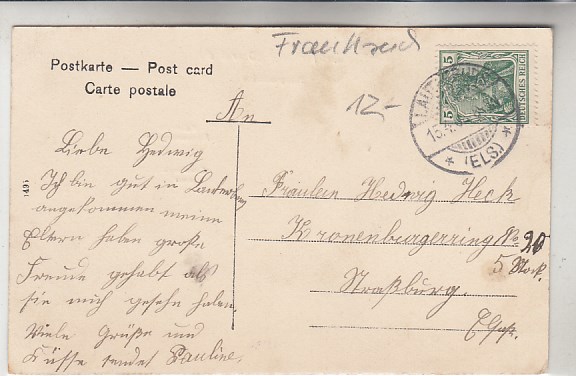 Frankreich
Postkarte — Post card
Carte postale
12-
5 5
DEUTSCHES REICH
* (ELS.) *
An
Liebe Hedwig
Ich bin gut in Lauterburg
angekommen meine
Eltern haben große
Freude gehabt als
sie mich gesehn haben.
Viele Grüße und
Küsse sendet Pauline.
Fräulein Hedwig Heck
Kronenburgerring No 20
5 Stock.
Straßburg.
Elsaß.
1491